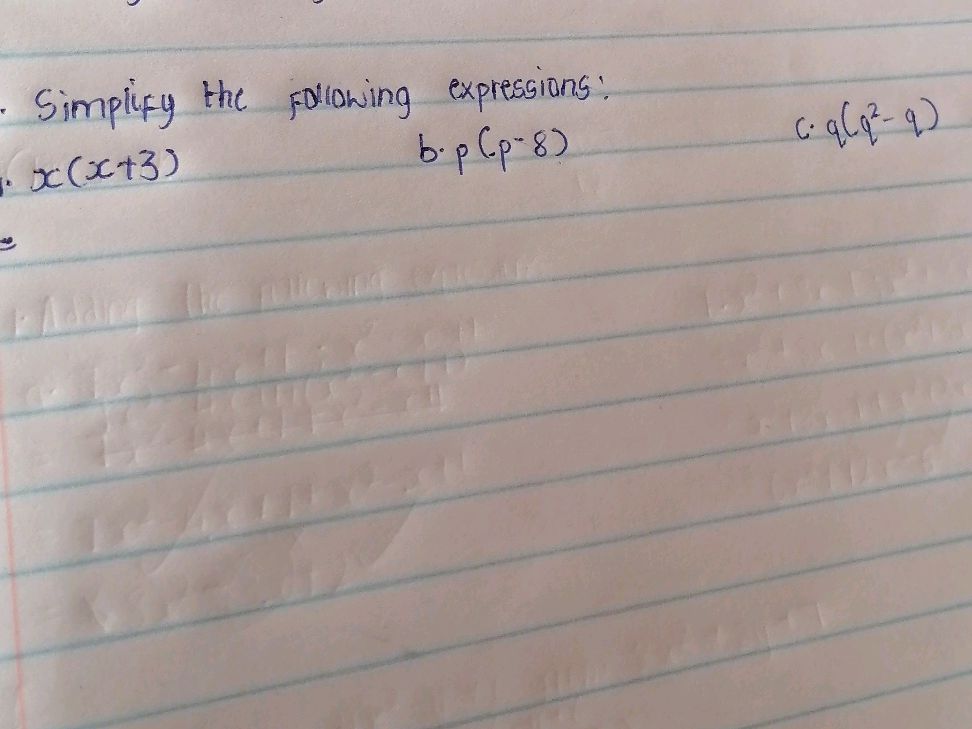 . Simplify the following expressions:
. x(x+3) b. p(p-8) c. q(q²-q)
=